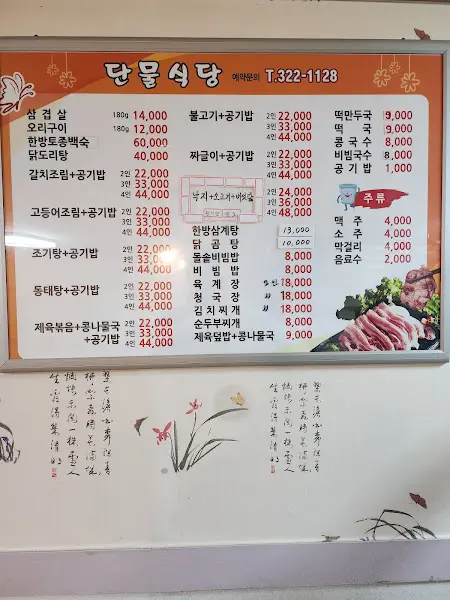 단물식당 예약문의 T.322-1128
삼겹살 180g 14,000
오리구이 180g 12,000
한방토종백숙 60,000
닭도리탕 40,000
갈치조림+공기밥 2인 22,000
3인 33,000
4인 44,000
고등어조림+공기밥 2인 22,000
3인 33,000
4인 44,000
조기탕+공기밥 2인 22,000
3인 33,000
4인 44,000
동태탕+공기밥 2인 22,000
3인 33,000
4인 44,000
제육볶음+콩나물국 2인 22,000
+공기밥 3인 33,000
4인 44,000
불고기+공기밥 2인 22,000
3인 33,000
4인 44,000
짜글이+공기밥 2인 22,000
3인 33,000
4인 44,000
낙지+소고기+버섯전골 2인 24,000
3인 36,000
4인 48,000
한방삼계탕 13,000
닭곰탕 10,000
돌솥비빔밥 8,000
비빔밥 8,000
육계장 2인 18,000
청국장 〃 18,000
김치찌개 〃 18,000
순두부찌개 8,000
제육덮밥+콩나물국 9,000
떡만두국 9,000
떡국 9,000
콩국수 8,000
비빔국수 8,000
공기밥 1,000
주류
맥주 4,000
소주 4,000
막걸리 4,000
음료수 2,000